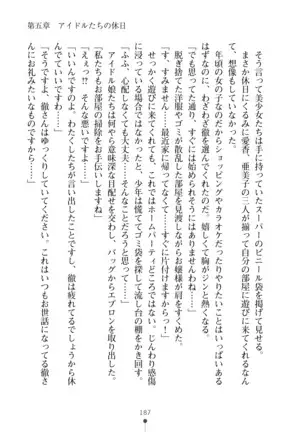 第五章　アイドルたちの休日
　そう言って美少女たちは手に持っていたスーパーのビニール袋を掲げて見せる。
　まさか休日にくるみに愛香、亜美子の三人が揃って自分の部屋に遊びに来てくれるなんて、想像もしていなかった。
　年頃の女の子なのだからショッピングやカラオケだったりやりたいことはいくらでもあるだろうに、わざわざ徹を選んでくれたのだ。嬉しくて胸がジンと熱くなる。
　脱ぎ捨てた洋服やゴミが散乱した部屋を見渡しながらお嬢様が肩をすくめた。
「でも思ってた通り、すぐには始められそうにはありませんわね」
「す、すみません……最近家に帰ってなくて……すぐに片付けますから！」
　せっかく遊びに来てくれたのに、これではホームパーティどころではない。じんわり感傷に浸っている場合ではなかったと、少年は慌ててゴミ袋を探して流し台の棚をかき回す。
「ふふ、そんなに慌てなくても大丈夫……そんなことだろうと思って……」
　アイドル娘たちは何やら意味深な目配せを交わし、バッグからエプロンを取り出した。
「私たちもお部屋の掃除をお手伝いしますね」
「ええっ!?　そんな悪いですよ！」
「いいんですのよ。わたくしたちが言い出したことですから。徹は疲れてるでしょうから休んでいてくださいまし」
「そうですよ、徹さんはゆっくりしていてください。これはいつもお世話になってる徹さんにお礼みたいなものですから……」
187